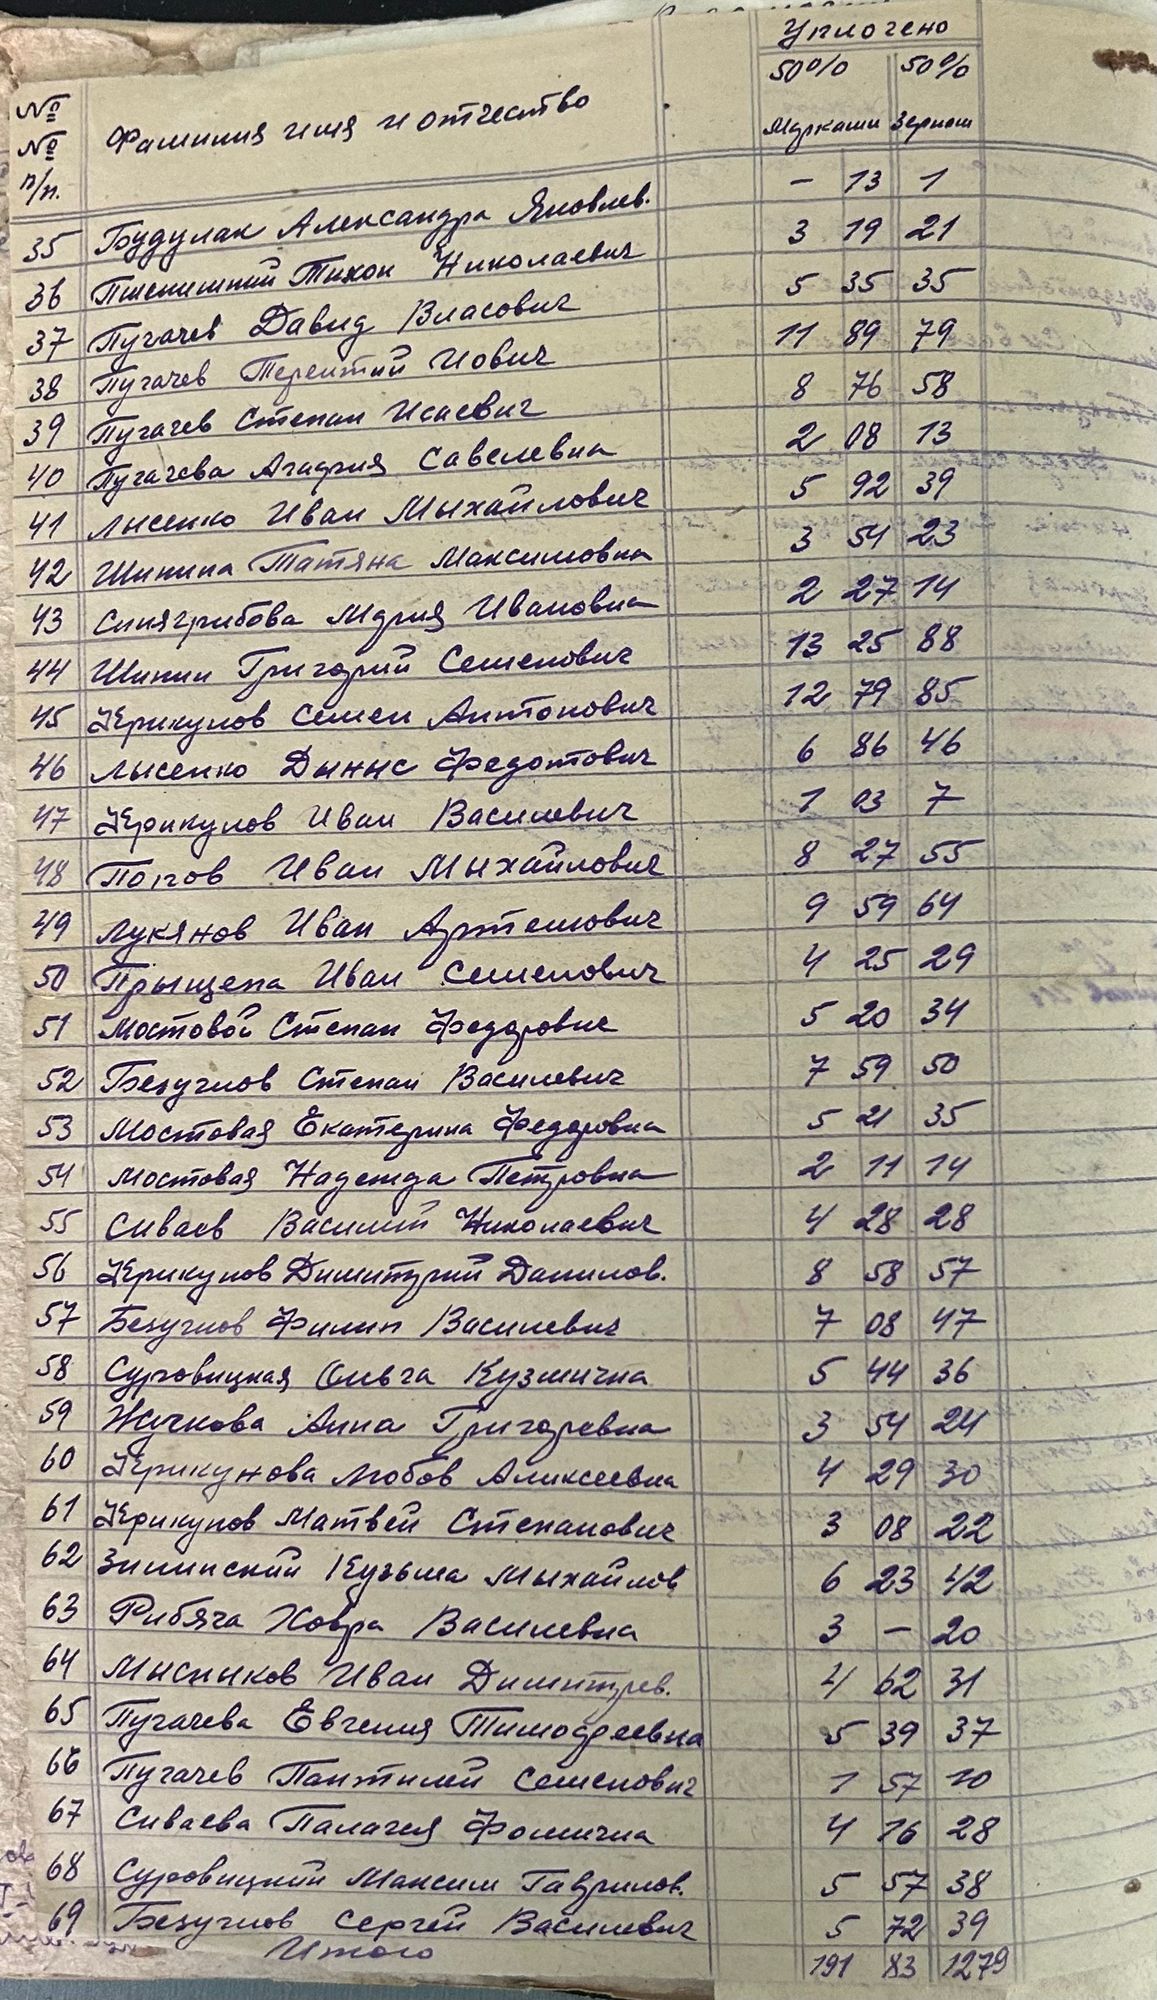 Уплочено
№ 50% 50%
№ Фамилия имя и отчество Марками Зерном
п/п.
35 Будулак Александра Яковлев. – 13 1
36 Пшенишний Тихон Николаевич 3 19 21
37 Пугачев Давид Власович 5 35 35
38 Пугачев Терентий Иович 11 89 79
39 Пугачев Степан Исаевич 8 76 58
40 Пугачева Агафия Савелевна 2 08 13
41 Лысенко Иван Мыхайлович 5 92 39
42 Шипина Татяна Максимовна 3 54 23
43 Синягрибова Мария Ивановна 2 27 14
44 Шипин Григорий Семенович 13 25 88
45 Керикулов Семен Антонович 12 79 85
46 Лысенко Дыныс Федотович 6 86 46
47 Керикулов Иван Василевич 1 03 7
48 Попов Иван Мыхайлович 8 27 55
49 Лукянов Иван Артемович 9 59 64
50 Прыщепа Иван Семенович 4 25 29
51 Мостовой Степан Федорович 5 20 34
52 Безуглов Степан Василевич 7 59 50
53 Мостовая Екатерина Федоровна 5 21 35
54 Мостовая Надежда Петровна 2 11 14
55 Сиваев Василий Николаевич 4 28 28
56 Керикулов Димитрий Данилов. 8 58 57
57 Безуглов Филип Василевич 7 08 47
58 Суровицкая Ольга Кузмична 5 44 36
59 Жучкова Анна Григоревна 3 54 24
60 Керикунова Любов Аликсеевна 4 29 30
61 Керикулов Матвей Степанович 3 08 22
62 Зилинский Кузьма Мыхайлов 6 23 42
63 Рибяча Ховра Василевна 3 – 20
64 Мысныков Иван Димитрев. 4 62 31
65 Пугачева Евгения Тимофеевна 5 39 37
66 Пугачев Пантилей Семенович 1 57 10
67 Сиваева Палагея Фомична 4 16 28
68 Суровицкий Максим Гаврилов. 5 57 38
69 Безуглов Сергей Василевич 5 72 39
Итого 191 83 1279